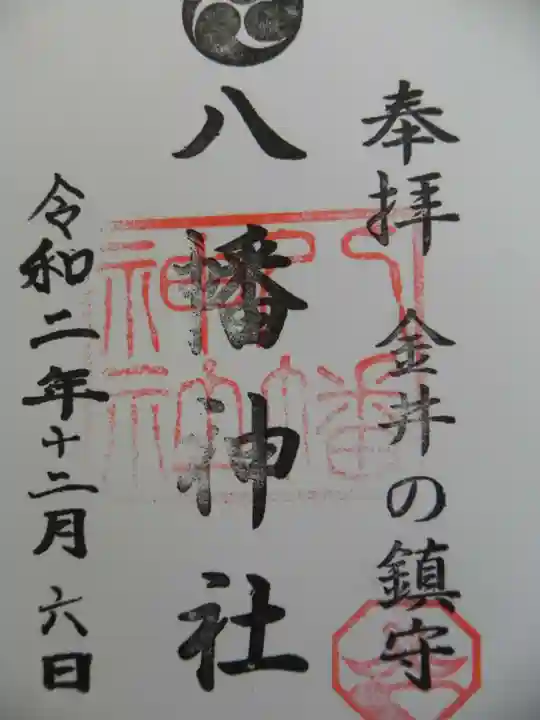 奉拝 金井の鎮守
八幡神社
令和二年十二月六日